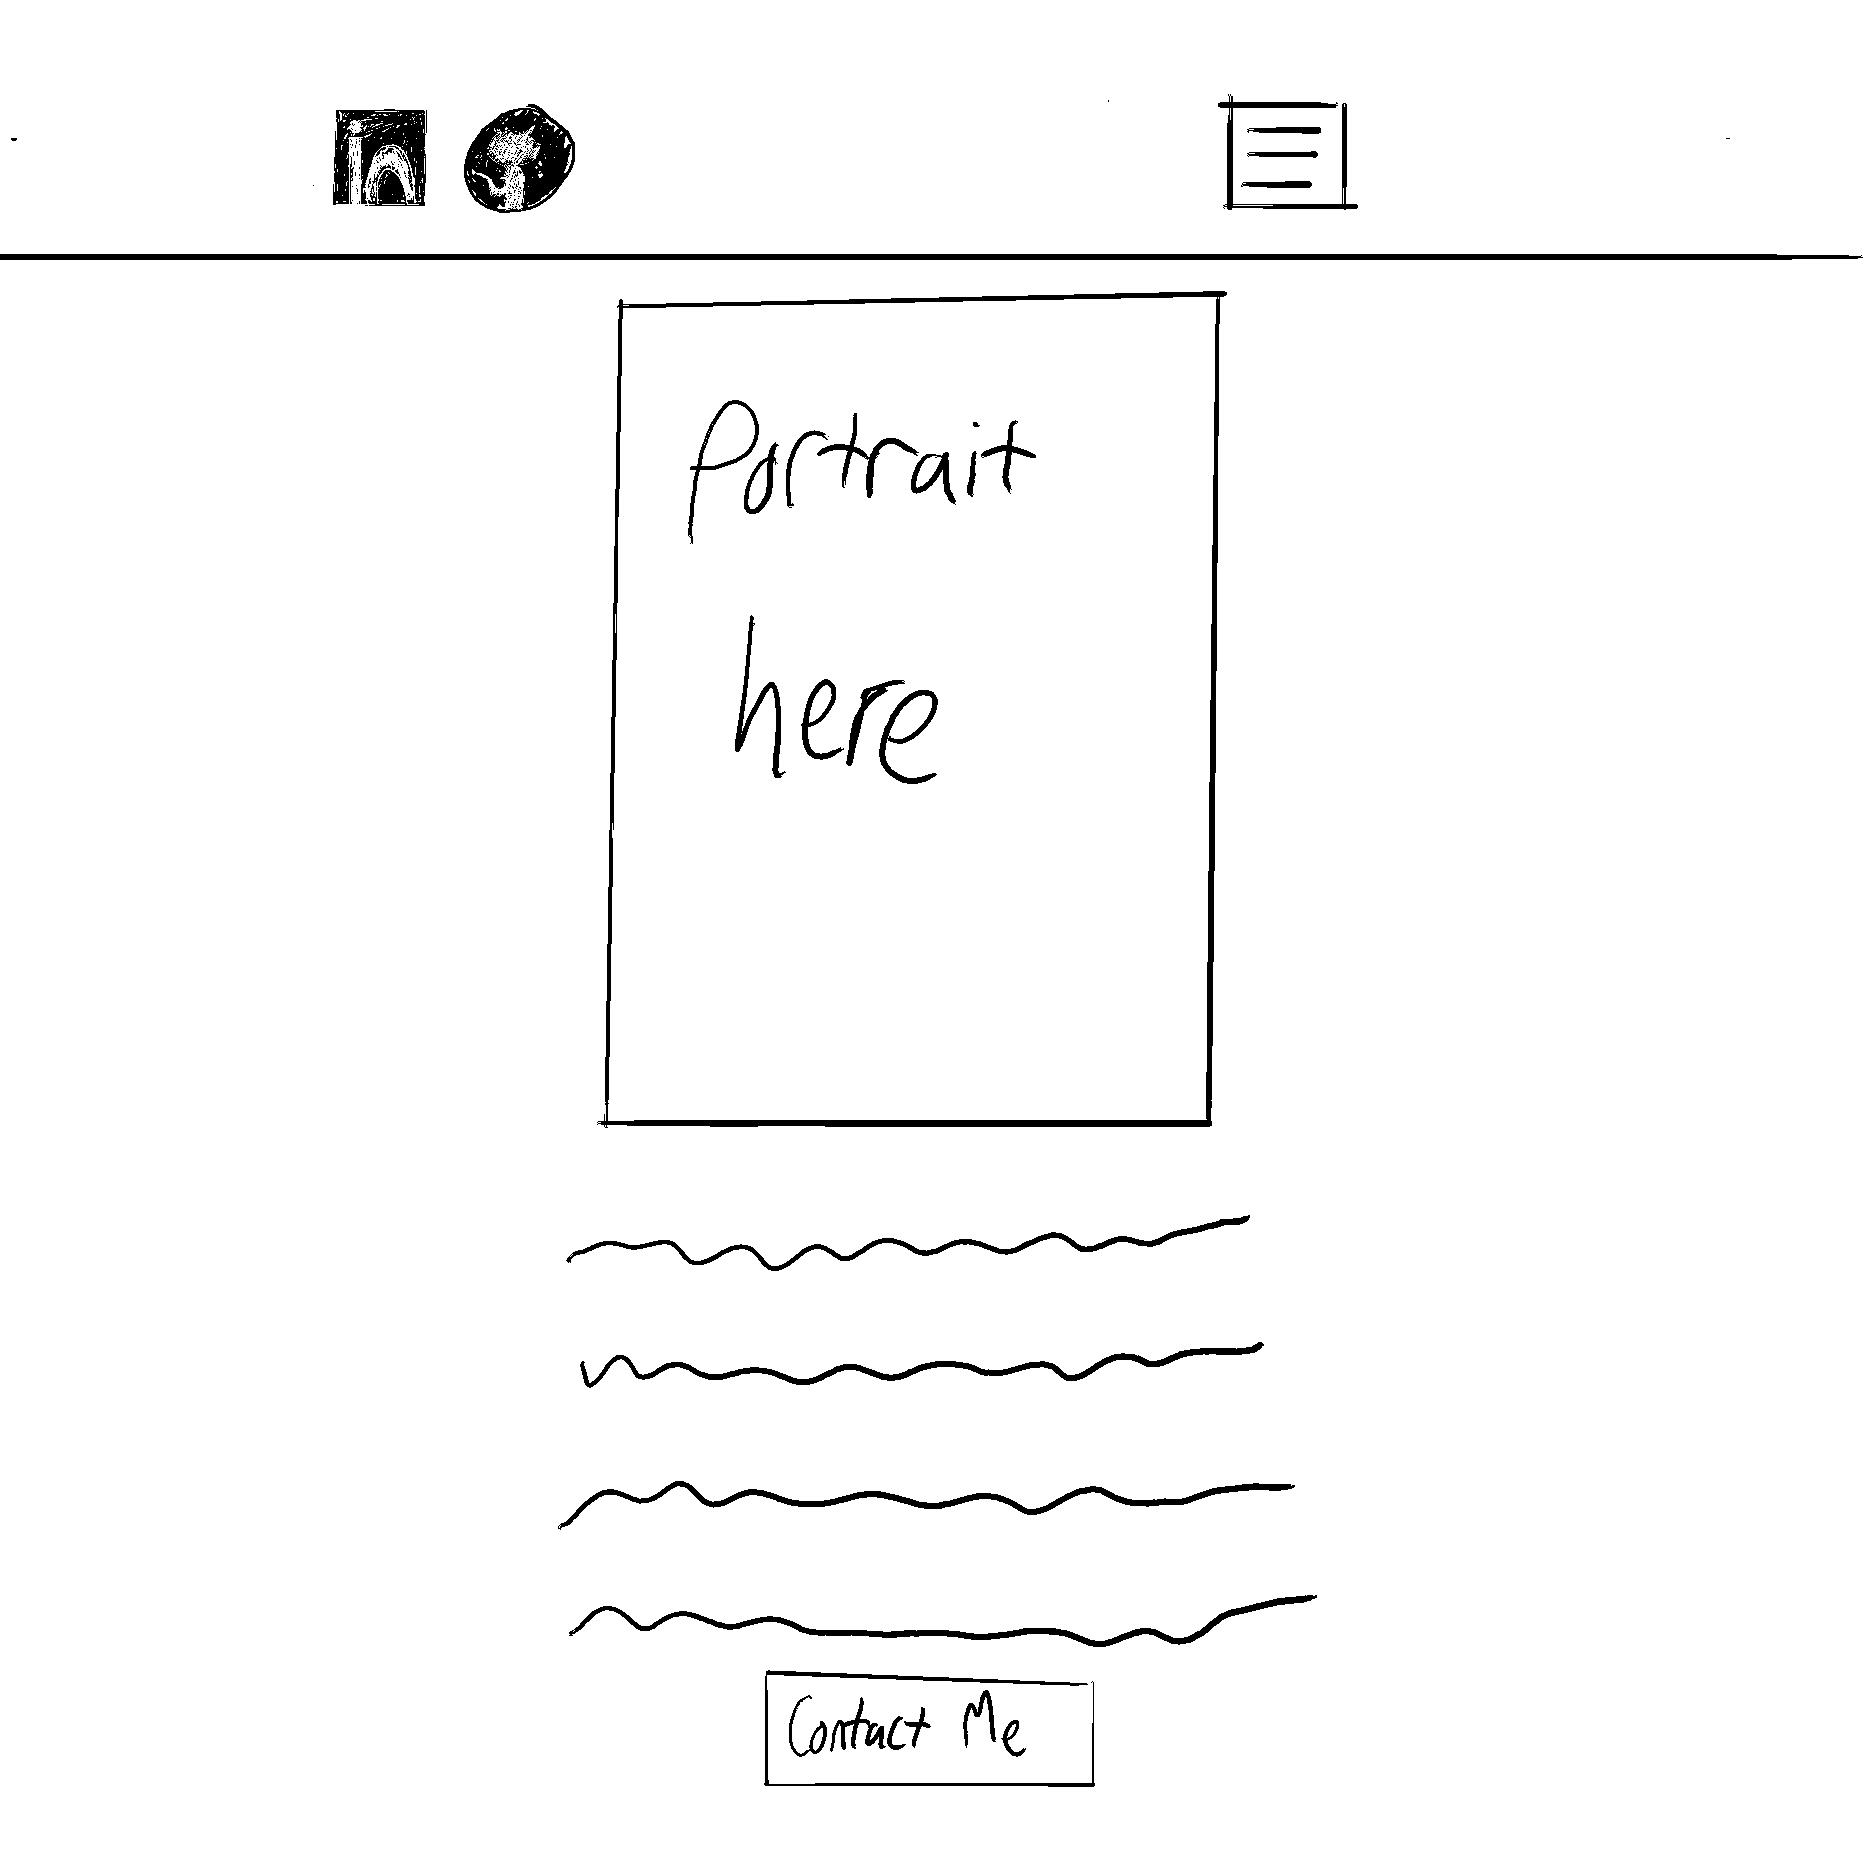 in
Portrait
here
Contact Me